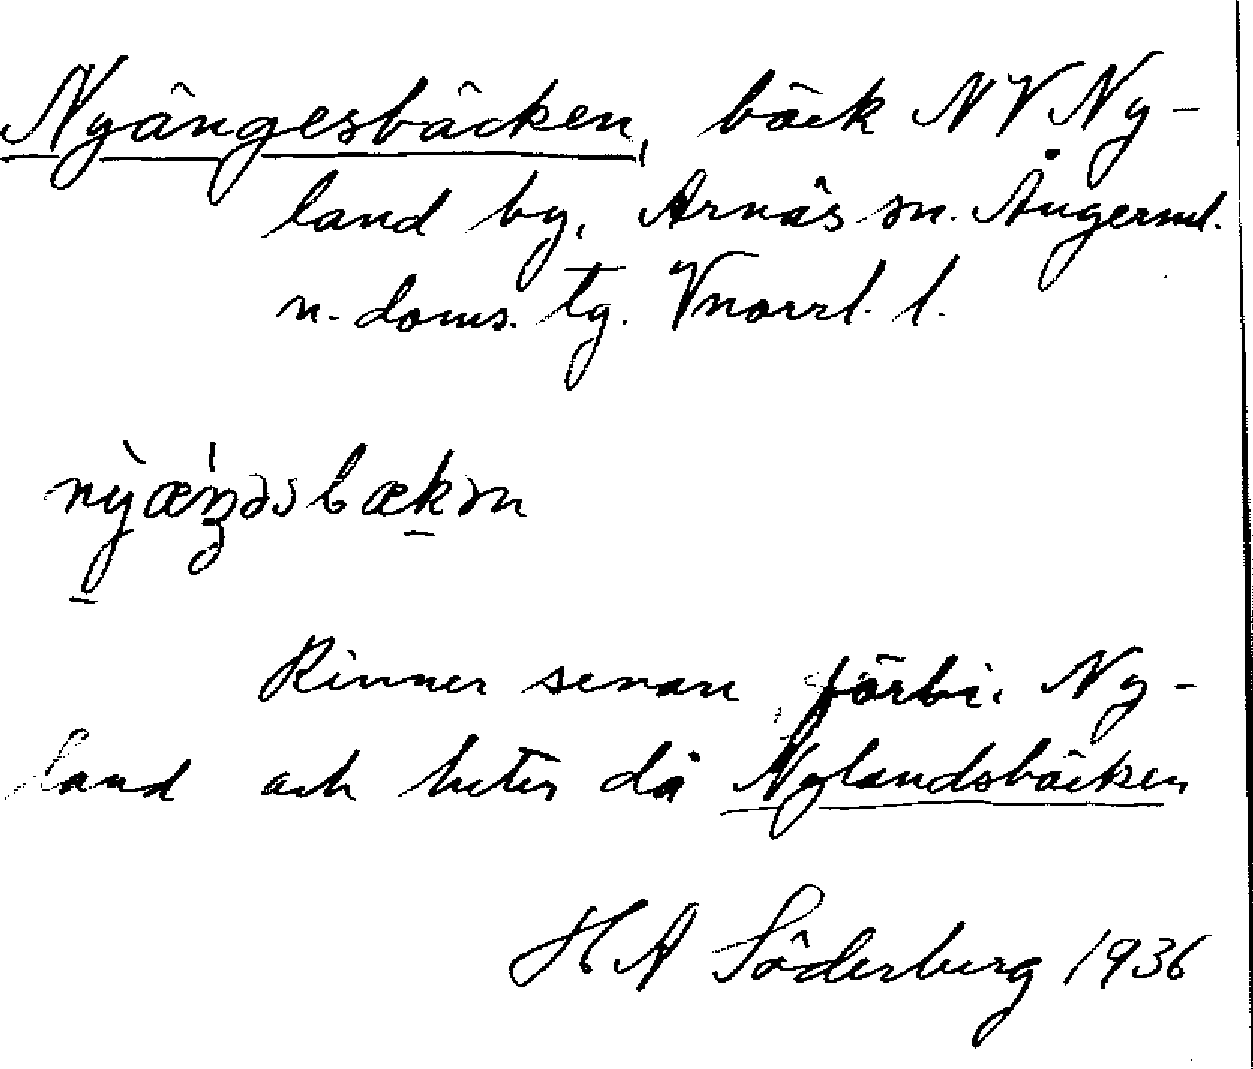 Nyängesbäcken, bäck NV Ny-
land by, Arnäs sn. Ångerml.
n. doms. tg. Vnorrl. l.
nỳæ̀ŋəsbæk̠ən
Rinner senare förbi Ny-
land och heter då Nylandsbäcken
H A Söderberg 1936